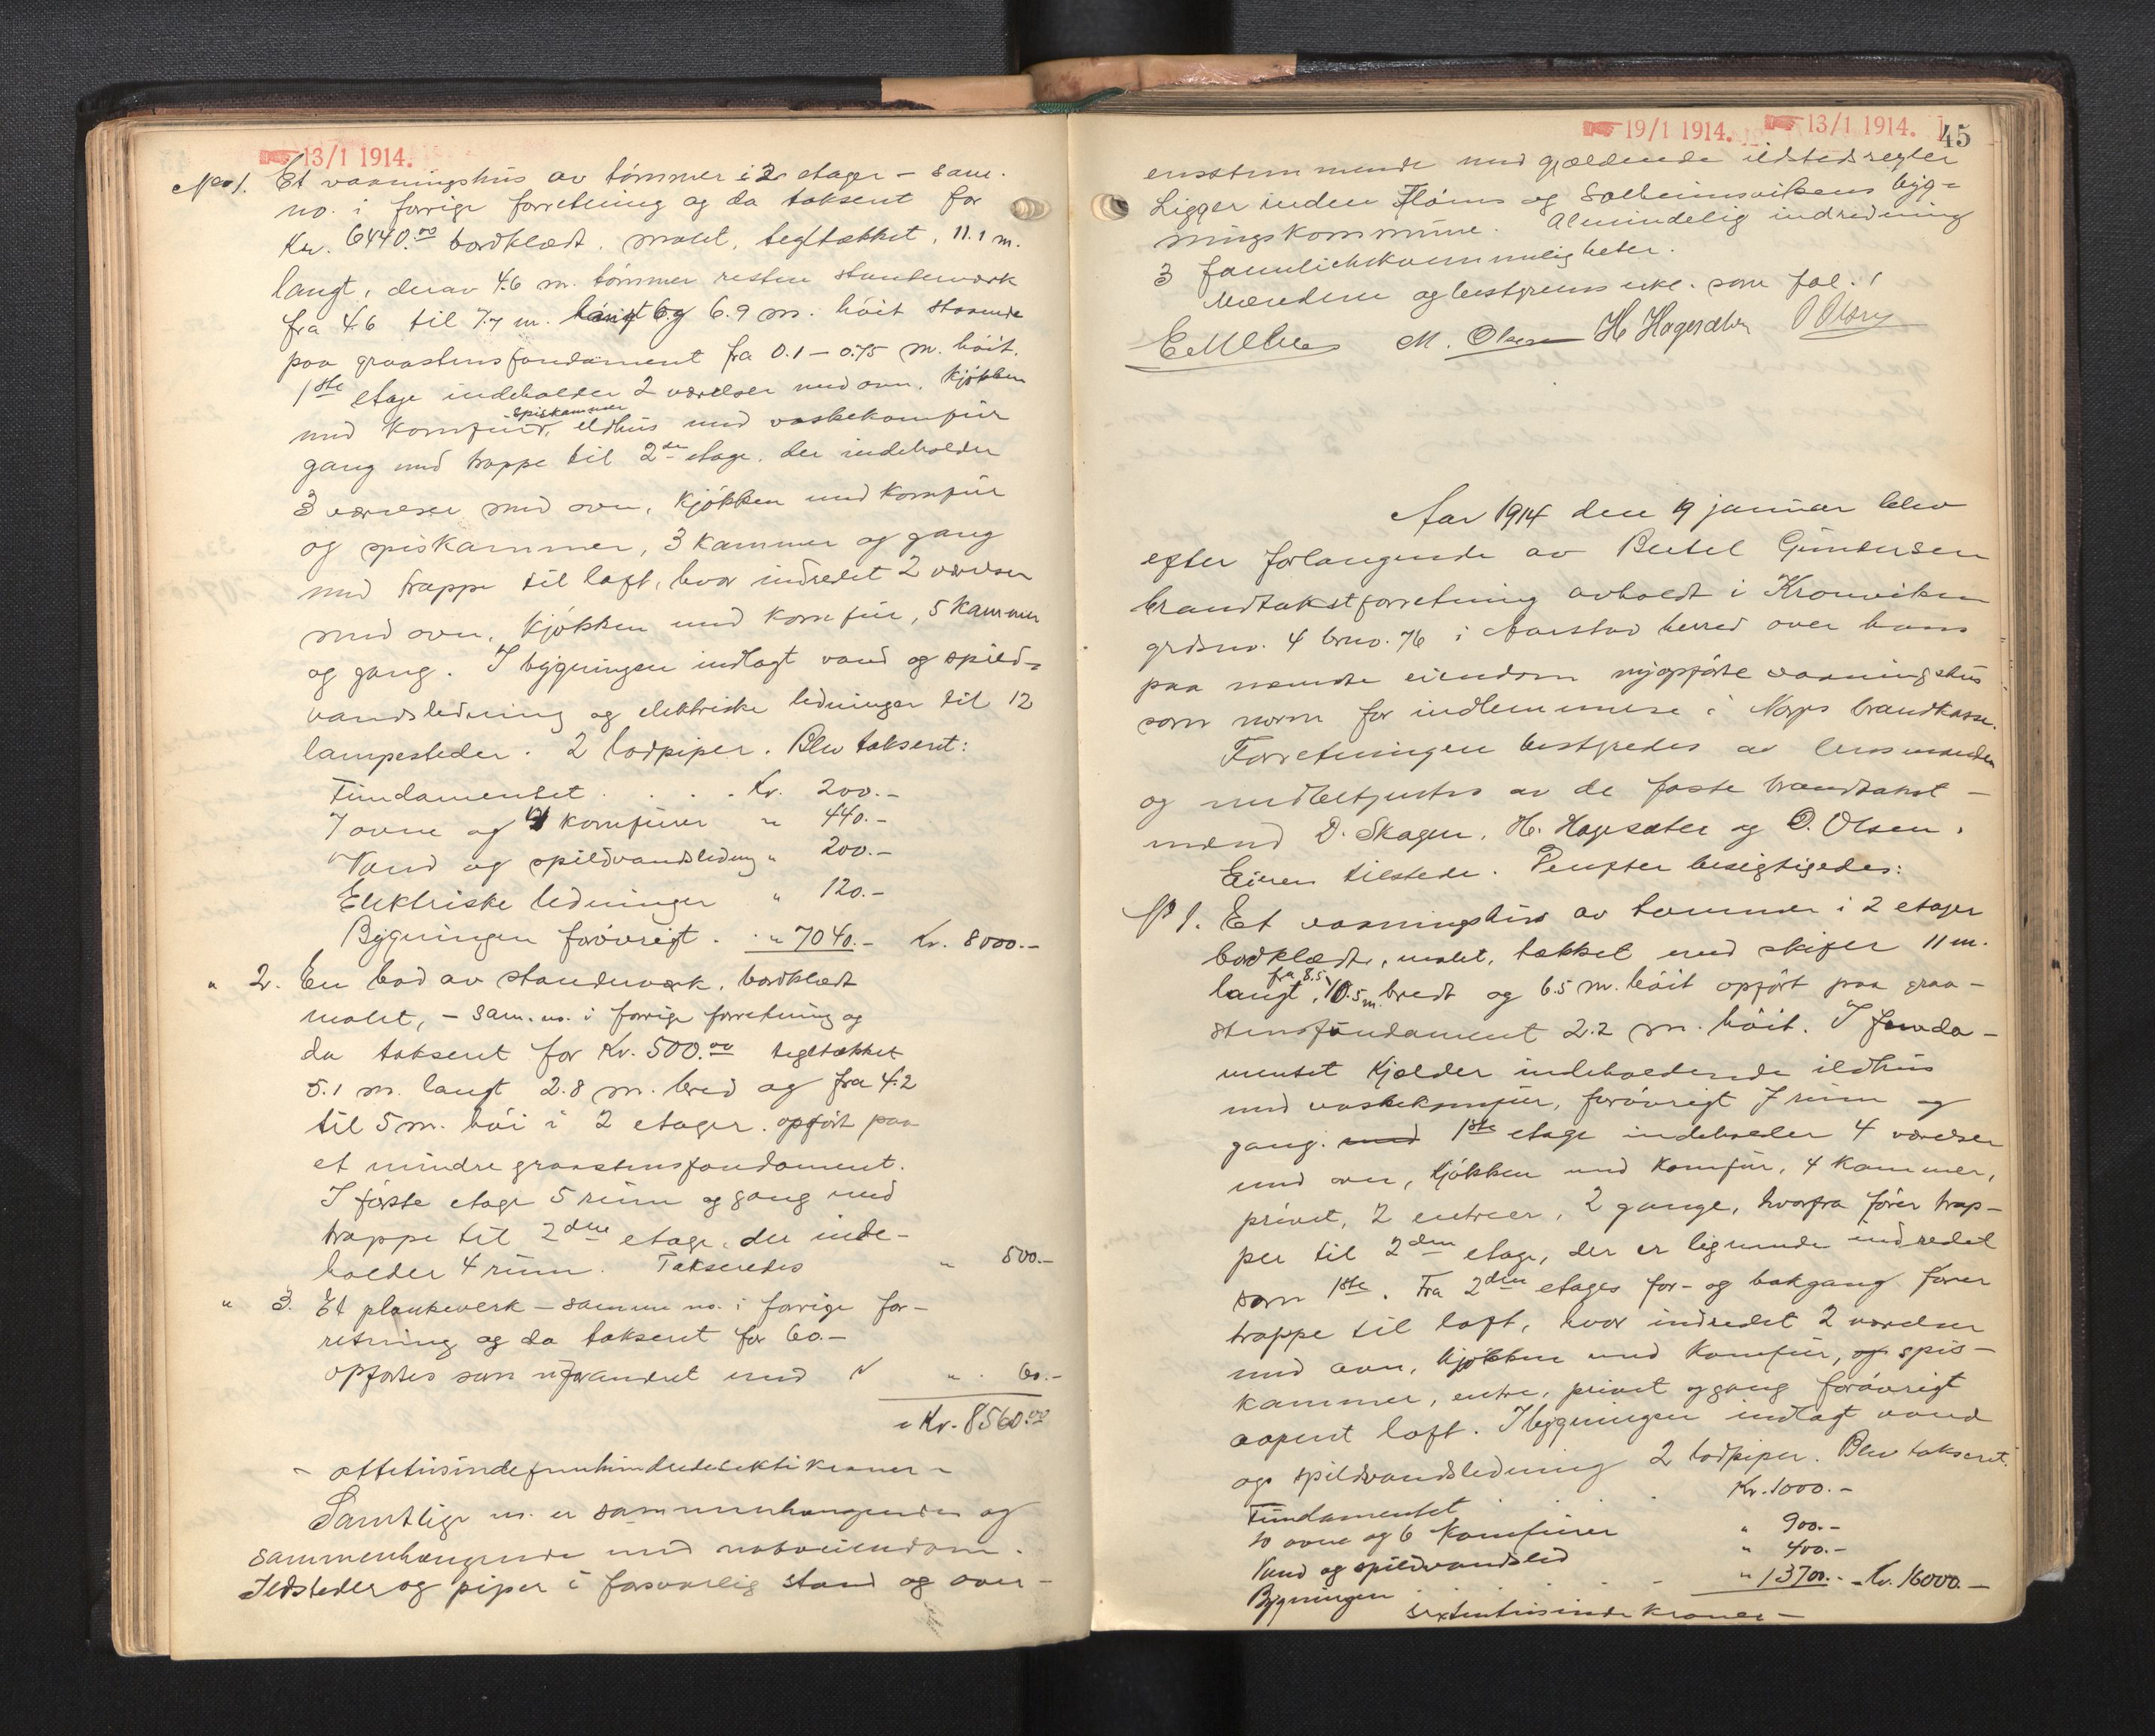 13/1 1914.
No 1. Et vaaningshus av tømmer i 2 etager – sam.
no. i forrige forretning og da taksert for
Kr. 6440.00 bordklædt, malet, tegltækket, 11.1 m.
langt, derav 4.6 m. tømmer resten standerverk
fra 4.6 til 7.7 m. og 6.9 m. høit staaende
paa graastensfundament fra 0.1 – 0.75 m. høit.
1ste etage indeholder 2 værelser med ovn, kjøkken
med komfur, spiskammer, ildhus med vaskekomfur
gang med trappe til 2den etage, der indeholder
3 værelser med ovn, kjøkken med komfur
og spiskammer, 3 kammer og gang
med trappe til loft, hvor indredet 2 værelser
med ovn, kjøkken med komfur, 5 kammer
og gang. I bygningen indlagt vand og spild-
vandsledning og elektriske ledninger til 12
lampesteder. 2 lodpiper. Blev taksert:
Fundamentet . . . Kr. 200.–
7 ovne og 4 komfurer " 440.–
Vand og spildvandsledning " 200.–
Elektriske ledninger " 120.–
Bygningen forøvrigt . . " 7040.– Kr. 8000.–
" 2. En bod av standerverk, bordklædt
malet, – sam. no. i forrige forretning og
da taksert for Kr. 500.00 tegltækket
5.1 m. langt 2.8 m. bred og fra 4.2
til 5 m. høi i 2 etager. opført paa
et mindre graastensfundament.
I første etage 5 rum og gang med
trappe til 2den etage, der inde-
holder 4 rum. Takseredes " 500.–
" 3. Et plankeverk – samme no. i forrige for-
retning og da taksert for 60.–
opførtes som uforandret med " . 60.–
Kr. 8560.00
– ottetusindefemhundredeseksti kroner –
Samtlige no. er sammenhængende og
sammenhængende med naboeiendom.
Ildsteder og piper i forsvarlig stand og over-
19/1 1914. 13/1 1914. 45
ensstemmende med gjældende ildstedsregler
Ligger inden Fløens og Solheimsvikens byg-
ningskommune. Almindelig indredning
3 familiebekvemmeligheter.
Mændene og bestyrerens erkl. som fol. 1
M. Olsen H Hagesæter O Olsen
Aar 1914 den 19 januar blev
efter forlangende av Bertel Gundersen
brandtakstforretning avholdt i Kronviken
grdsno. 4 brno. 76 i Aarstad herred over hans
paa nævnte eiendom nyopførte vaaningshus
som norm for indlemmelse i Norges brandkasse.
Forretningen bestyredes av lensmanden
og meddeltjentes av de faste brandtakst-
mænd D. Skagen, H. Hagesæter og O. Olsen.
Eieren tilstede. Derefter besigtigedes:
No 1. Et vaaningshus av tømmer i 2 etager
bordklædt, malet, tækket med skifer 11 m.
langt, fra 8.5 10.5 m. bredt og 6.5 m. høit opført paa graa-
stensfundament 2.2 m. høit. I funda-
mentet kjælder indeholdende ildhus
med vaskekomfur, forøvrigt 7 rum og
gang. med 1ste etage indeholder 4 værelser
med ovn, kjøkken med komfur, 4 kammer,
privet, 2 entreer, 2 gange, hvorfra fører trap-
per til 2den etage, der er lignende indredet
som 1ste. Fra 2den etages for- og bakgang fører
trappe til loft, hvor indredet 2 værelser
med ovn, kjøkken med komfur, og spis-
kammer, entre, privet og gang forøvrigt
aapent loft. I bygningen indlagt vand
og spildvandsledning 2 lodpiper. Blev taksert:
Fundamentet . Kr. 1000.–
10 ovne og 6 komfurer " 900.–
Vand og spildvandsled " 400.–
Bygningen – " 13700.– Kr. 16000.–
sekstentusinde kroner –